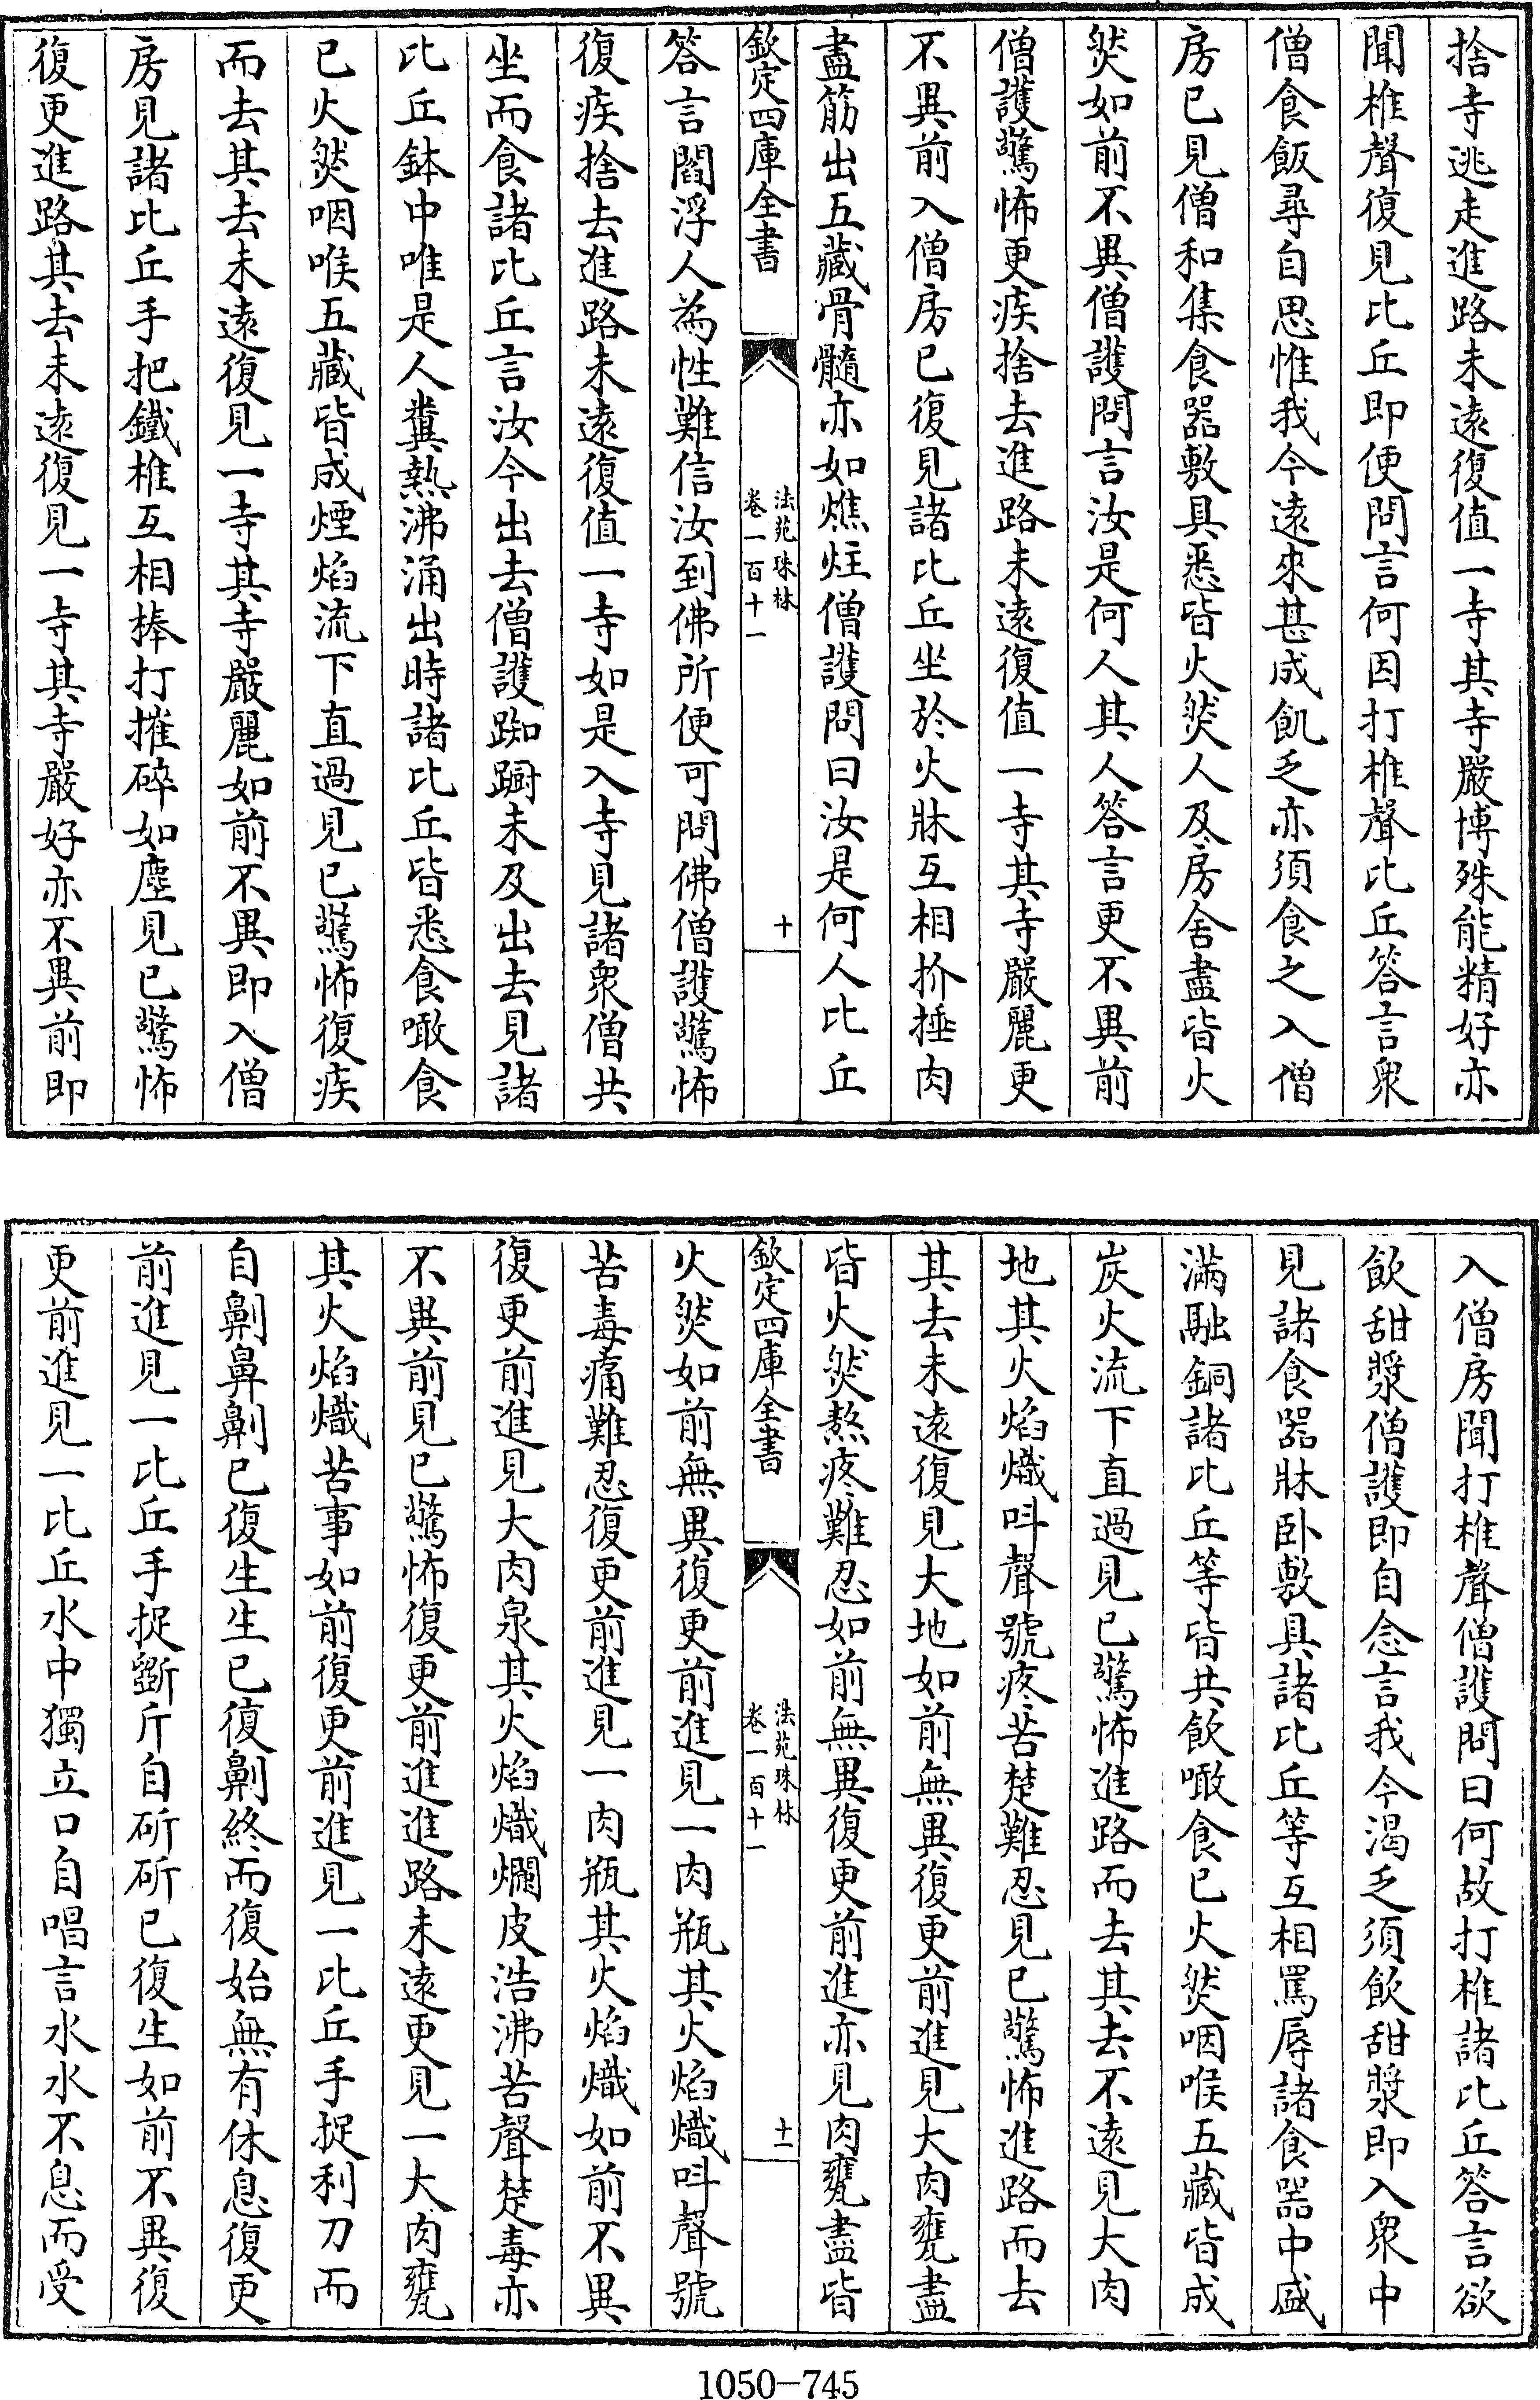 捨寺逃走進路未遠復值一寺其寺嚴博殊能精好亦
聞椎聲復見比丘即便問言何因打椎聲比丘答言衆
僧食飯尋自思惟我今遠來甚成飢乏亦須食之入僧
房已見僧和集食器敷具悉皆火㷼人及房舍盡皆火
㷼如前不異僧護問言汝是何人其人答言更不異前
僧護驚怖更疾捨去進路未遠復值一寺其寺嚴麗更
不異前入僧房已復見諸比丘坐於火牀互相扴捶肉
盡筋出五藏骨髓亦如燋炷僧護問曰汝是何人比丘
欽定四庫全書
法苑珠林
卷一百十一
十
答言閻浮人為性難信汝到佛所便可問佛僧護驚怖
復疾捨去進路未遠復值一寺如是入寺見諸衆僧共
坐而食諸比丘言汝今出去僧護踟蹰未及出去見諸
比丘鉢中唯是人糞熱沸涌出時諸比丘皆悉食噉食
已火㷼咽喉五藏皆成煙焰流下直過見已驚怖復疾
而去其去未遠復見一寺其寺嚴麗如前不異即入僧
房見諸比丘手把鐵椎互相捧打摧碎如塵見已驚怖
復更進路其去未遠復見一寺其寺嚴好亦不異前即
入僧房聞打椎聲僧護問曰何故打椎諸比丘答言欲
飲甜漿僧護即自念言我今渴乏須飲甜漿即入衆中
見諸食器牀卧敷具諸比丘等互相罵辱諸食器中盛
滿融銅諸比丘等皆共飲噉食已火㷼咽喉五藏皆成
炭火流下直過見已驚怖進路而去其去不遠見大肉
地其火焰熾呌聲號疼苦楚難忍見已驚怖進路而去
其去未遠復見大地如前無異復更前進見大肉甕盡
皆火㷼熬疼難忍如前無異復更前進亦見肉甕盡皆
欽定四庫全書
法苑珠林
卷一百十一
十一
火㷼如前無異復更前進見一肉瓶其火焰熾呌聲號
苦毒痛難忍復更前進見一肉瓶其火焰熾如前不異
復更前進見大肉泉其火焰熾爛皮浩沸苦聲楚毒亦
不異前見已驚怖復更前進進路未遠更見一大肉甕
其火焰熾苦事如前復更前進見一比丘手捉利刀而
自劓鼻劓已復生生已復劓終而復始無有休息復更
前進見一比丘手捉斷斤自斫斫已復生如前不異復
更前進見一比丘水中獨立口自唱言水水不息而受
1050-745